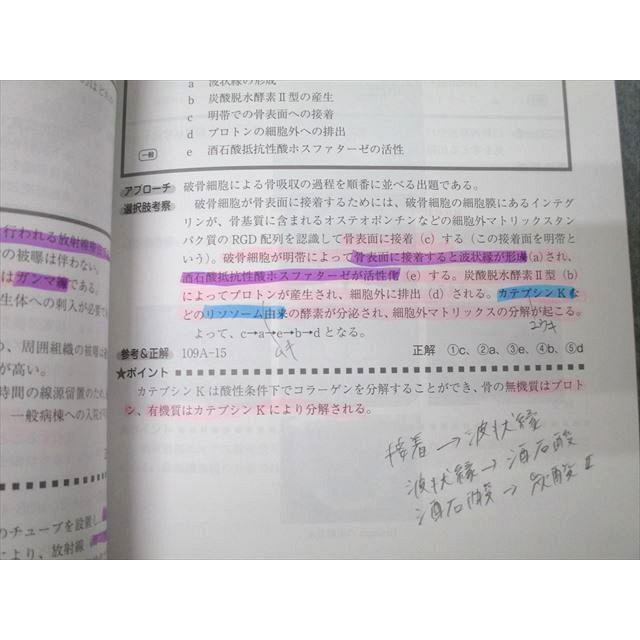 a 波状縁の形成
b 炭酸脱水酵素Ⅱ型の産生
c 明帯での骨表面への接着
d プロトンの細胞外への排出
一般 e 酒石酸抵抗性酸ホスファターゼの活性
アプローチ 破骨細胞による骨吸収の過程を順番に並べる出題である。
選択肢考察 破骨細胞が骨表面に接着するためには、破骨細胞の細胞膜にあるインテグ
リンが、骨基質に含まれるオステオポンチンなどの細胞外マトリックスタン
パク質のRGD配列を認識して骨表面に接着（c）する（この接着面を明帯と
いう）。破骨細胞が明帯によって骨表面に接着すると波状縁が形成(a)され、
酒石酸抵抗性酸ホスファターゼが活性化（e）する。炭酸脱水酵素Ⅱ型（b）
によってプロトンが産生され、細胞外に排出（d）される。カテプシンKな
どのリソソーム由来の酵素が分泌され、細胞外マトリックスの分解が起こる。
よって、c→a→e→b→dとなる。
参考&正解 109A-15 正解 ①c、②a、③e、④b、⑤d
★ポイント
カテプシンKは酸性条件下でコラーゲンを分解することができ、骨の無機質はプロト
ン、有機質はカテプシンKにより分解される。
接着→波状縁
波状縁→酒石酸
酒石酸→炭酸Ⅱ
行われる放射線
の被曝は伴わない。
はガンマ線である。
生体への刺入が必要
め、周囲組織の被曝
が高い。
時間の線源留置のため
一般病棟への入院が
のチューブを設置し
により、放射線